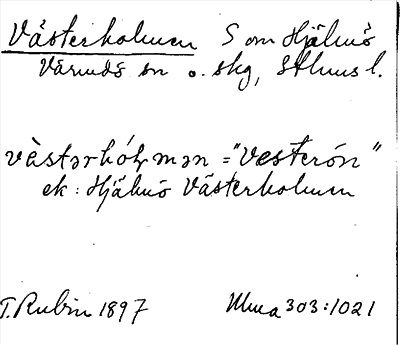 Västerholmen S om Hjälmö
Värmdö sn o. skg, Sthms l.
västərhól̥mən = "Vesterön"
ek: Hjälmö Västerholmen
T. Rubin 1897 Uma 303:1021